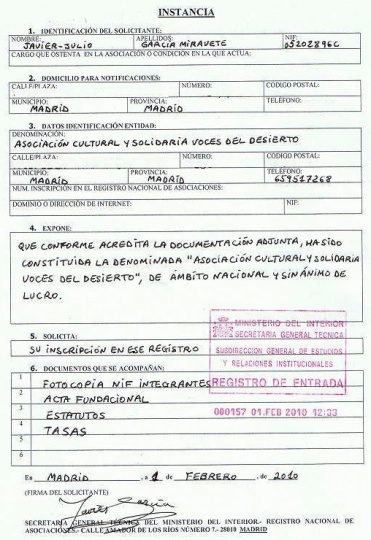 INSTANCIA
1. IDENTIFICACIÓN DEL SOLICITANTE:
NOMBRE: APELLIDOS: NIF:
JAVIER-JULIO GARCIA MIRAVETE 05202896C
CARGO QUE OSTENTA EN LA ASOCIACIÓN O CONDICIÓN EN LA QUE ACTUA:
2. DOMICILIO PARA NOTIFICACIONES:
CALLE/PLAZA: NÚMERO: CODIGO POSTAL:
MUNICIPIO: PROVINCIA: TELÉFONO:
MADRID MADRID
3. DATOS IDENTIFICACIÓN ENTIDAD:
DENOMINACIÓN:
ASOCIACIÓN CULTURAL Y SOLIDARIA VOCES DEL DESIERTO
CALLE/PLAZA: NÚMERO: CODIGO POSTAL:
MUNICIPIO: PROVINCIA: TELÉFONO:
MADRID MADRID 659517268
NUM. INSCRIPCIÓN EN EL REGISTRO NACIONAL DE ASOCIACIONES:
DOMINIO O DIRECCIÓN DE INTERNET: NIF:
4. EXPONE:
QUE CONFORME ACREDITA LA DOCUMENTACIÓN ADJUNTA, HA SIDO
CONSTITUIDA LA DENOMINADA "ASOCIACIÓN CULTURAL Y SOLIDARIA
VOCES DEL DESIERTO", DE ÁMBITO NACIONAL Y SIN ÁNIMO DE
LUCRO.
MINISTERIO DEL INTERIOR
SECRETARIA GENERAL TECNICA
SUBDIRECCION GENERAL DE ESTUDIOS
Y RELACIONES INSTITUCIONALES
REGISTRO DE ENTRADA
000157 01.FEB 2010 12:33
5. SOLICITA:
SU INSCRIPCIÓN EN ESE REGISTRO
6. DOCUMENTOS QUE SE ACOMPAÑAN:
1 FOTOCOPIA NIF INTEGRANTES
2 ACTA FUNDACIONAL
3 ESTATUTOS
4 TASAS
5
6
En MADRID, a 1 de FEBRERO de 2010
(FIRMA DEL SOLICITANTE)
Javier García
SECRETARÍA GENERAL TÉCNICA DEL MINISTERIO DEL INTERIOR.- REGISTRO NACIONAL DE
ASOCIACIONES.- CALLE AMADOR DE LOS RÍOS NÚMERO 7.- 28010 MADRID